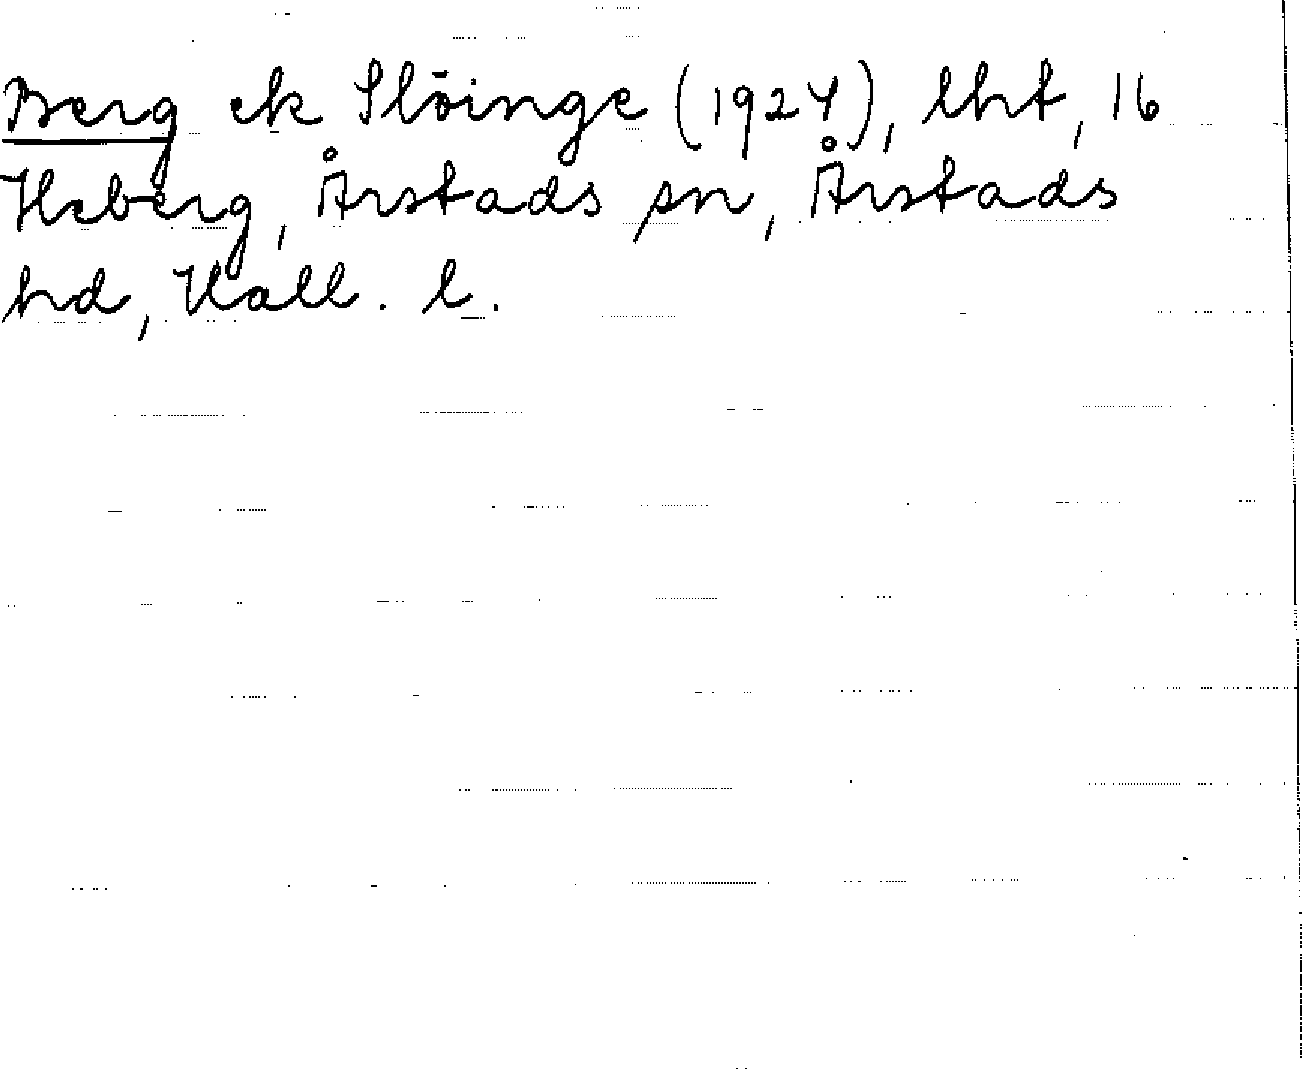 Berg ek Slöinge (1924), lht, 16
Heberg, Årstads sn, Årstads
hd, Hall. l.